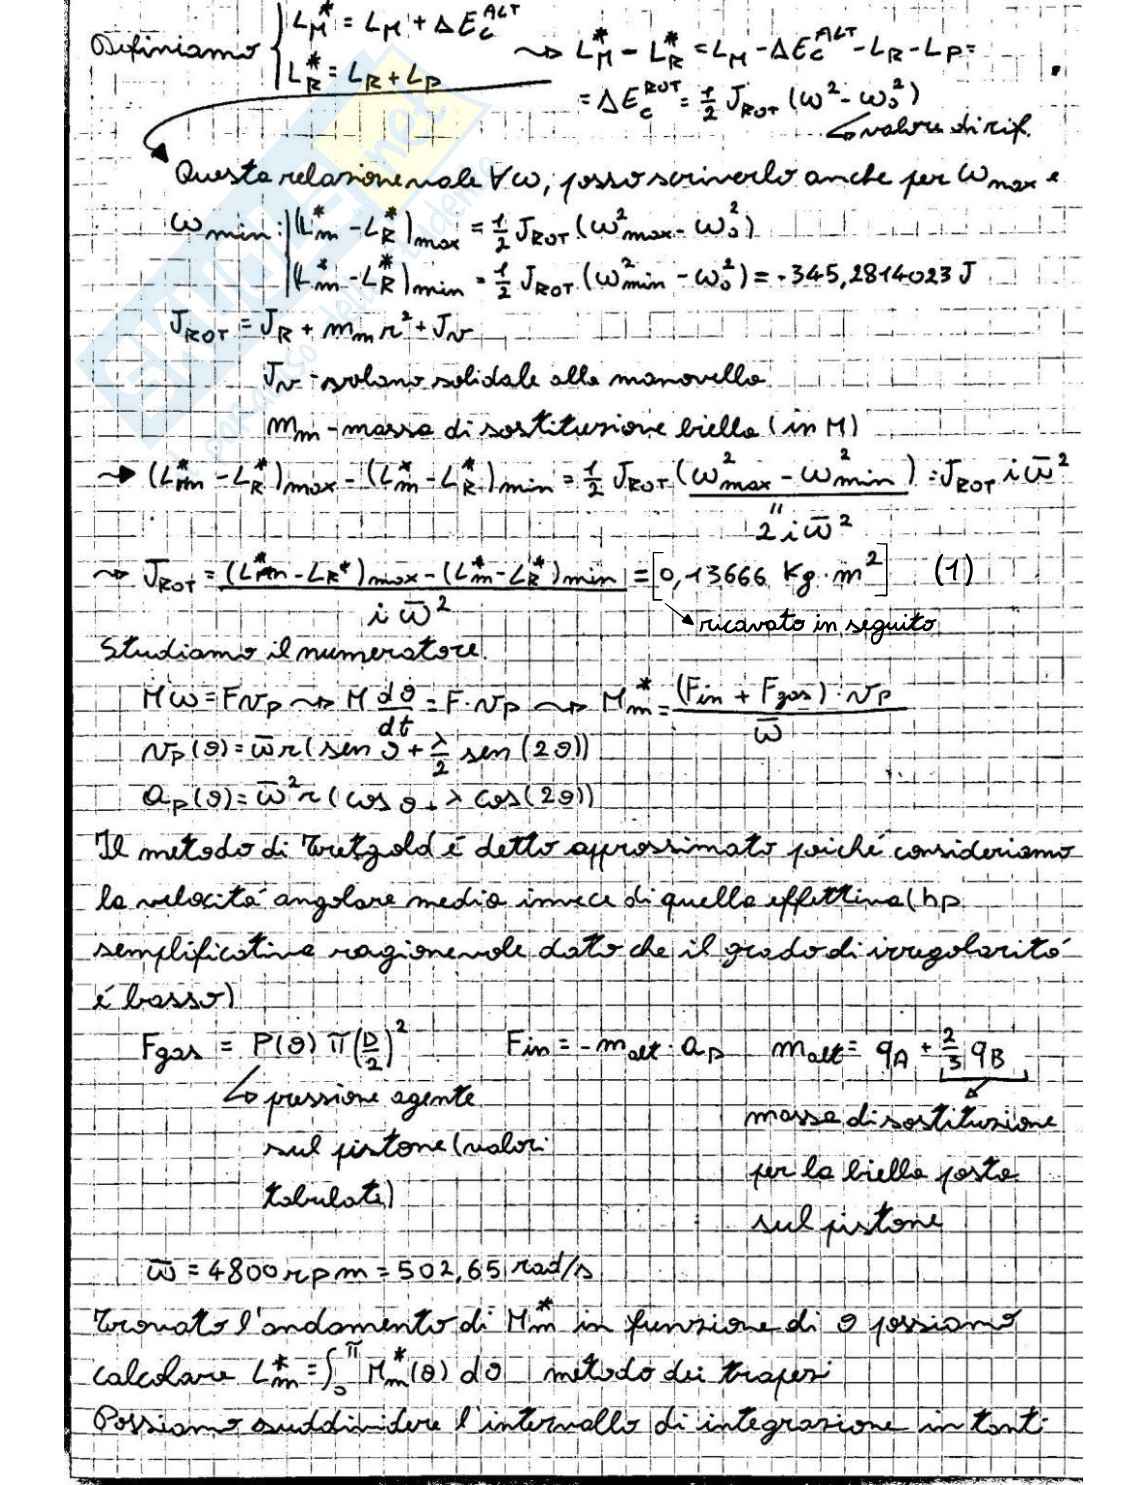 Definiamo { L_M^* = L_M + ΔE_c^ALT
L_R^* = L_R + L_P
⇝ L_M^* - L_R^* = L_M - ΔE_c^ALT - L_R - L_P =
= ΔE_c^ROT = 1/2 J_ROT (ω² - ω_0²)
↳ valore di rif.
Questa relazione vale ∀ω, posso scriverlo anche per ω_max e
ω_min: | (L_m^* - L_R^*)_max = 1/2 J_ROT (ω²_max - ω_0²)
| (L_m^* - L_R^*)_min = 1/2 J_ROT (ω²_min - ω_0²) = -345,2814023 J
J_ROT = J_R + m_m r² + J_v
J_v - volano solidale alla manovella
m_m - massa di sostituzione biella (in M)
⇝ (L_m^* - L_R^*)_max - (L_m^* - L_R^*)_min = 1/2 J_ROT (ω²_max - ω²_min) = J_ROT i ω̄²
"
2 i ω̄²
⇝ J_ROT = (L_m^* - L_R^*)_max - (L_m^* - L_R^*)_min / i ω̄² = [0,13666 Kg·m²] (1)
ricavato in seguito
Studiamo il numeratore.
Mω = F v_P ⇝ M dθ/dt = F·v_P ⇝ M_m^* = (F_in + F_gas)·v_P / ω̄
v_P(θ) = ω̄ r (sen θ + λ/2 sen(2θ))
a_P(θ) = ω̄² r (cos θ + λ cos(2θ))
Il metodo di Tretzold é detto approssimato poiché consideriamo
la velocitá angolare media invece di quella effettiva (hp
semplificativa ragionevole dato che il grado di irregolaritá
é basso)
F_gas = P(θ) π(D/2)² F_in = -m_alt · a_P m_alt = q_A + 2/3 q_B
↳ pressione agente
sul pistone (valori
tabulati)
massa di sostituzione
per la biella posta
sul pistone
ω̄ = 4800 rpm = 502,65 rad/s
Trovato l'andamento di M_m^* in funzione di θ possiamo
calcolare L_m^* = ∫_0^π M_m^*(θ) dθ metodo dei trapezi
Possiamo suddividere l'intervallo di integrazione in tanti